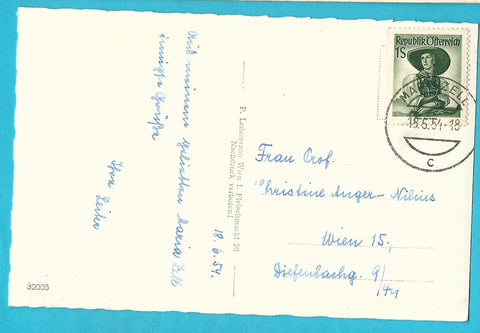 Aus meinem geliebten Maria Zell
innigste Grüße
Ihre
18.6.54.
P. Ledermann Wien I. Fleischmarkt 20
Nachdruck verboten!
32005
Republik Österreich
1S
MARIAZELL
18.6.54-18
c
Frau Prof.
Christine Anger-Nilius
Wien 15.,
Diefenbachg. 9/